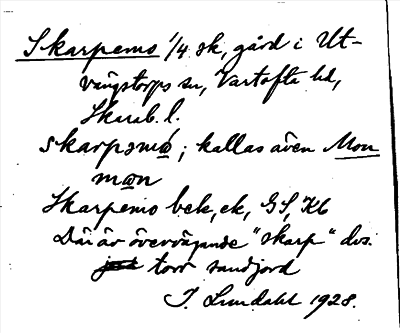 Skarpemo 1/4 sk, gård i Ut-
vängstorps sn, Vartofta hd,
Skarab. l.
skarpəmò; kallas även Mon
mɷn
Skarpemo bek, ek, GS, Kb
Där är övervägande "skarp" dvs.
torr sandjord
J. Lundahl 1928.